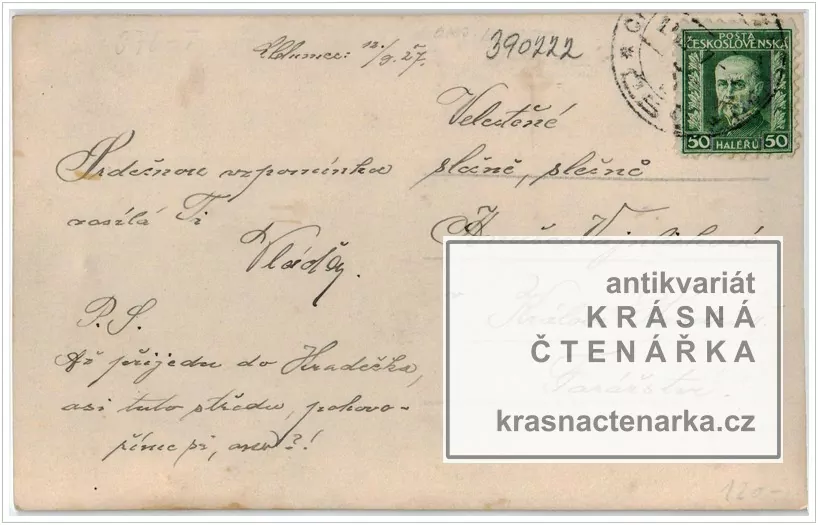 Chlumec: 12/9. 27.
390222
POSTA
ČESKOSLOVENSKÁ
50 HALÉŘŮ 50
Velectěné
slečně, slečně
Srdečnou vzpomínku
zasílá Ti
Vláďa.
P. S.
Až přijedu do Hradečka,
asi tuto středu, pohovo-
říme si, ano?!
antikvariát
KRÁSNÁ
ČTENÁŘKA
krasnactenarka.cz
120.-